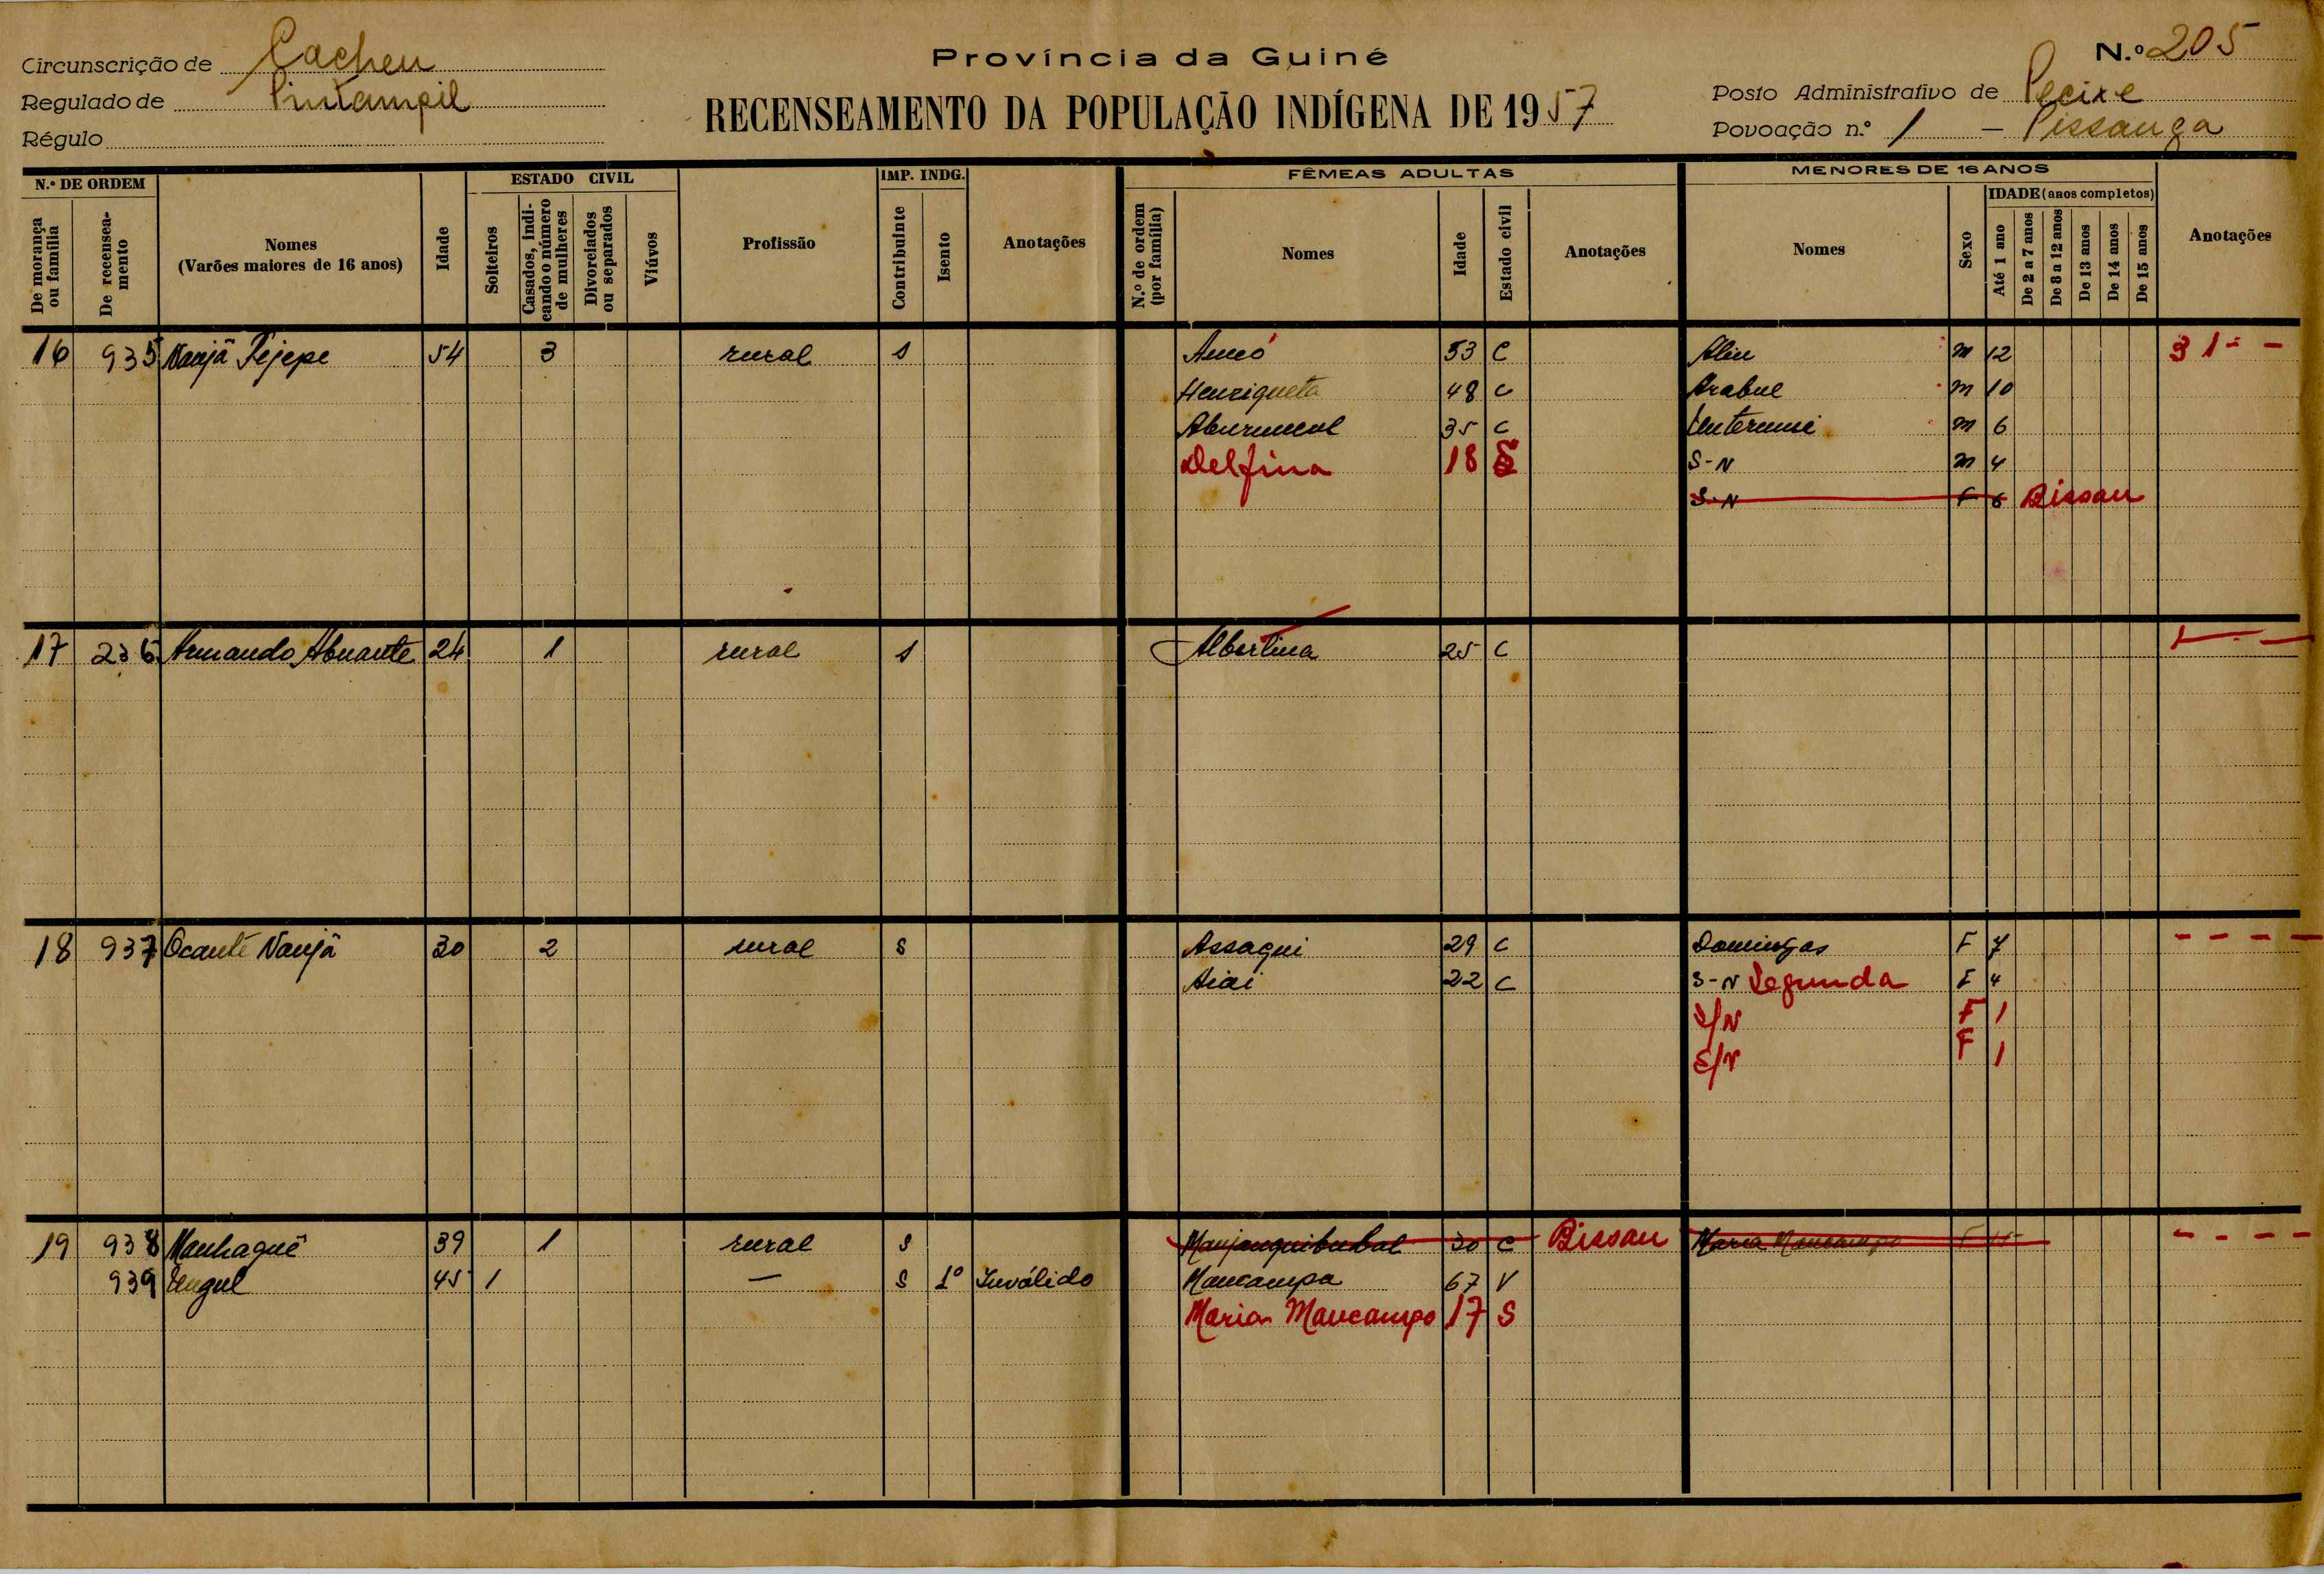 Circunscrição de Cacheu
Regulado de Pintampil
Régulo
Província da Guiné
RECENSEAMENTO DA POPULAÇÃO INDÍGENA DE 1957
N.º 205
Posto Administrativo de Pecixe
Povoação n.º 1 - Pissanga
N.º DE ORDEM
De morança ou família
De recenseamento
Nomes
(Varões maiores de 16 anos)
Idade
ESTADO CIVIL
Solteiros
Casados, indicando o número de mulheres
Divorciados ou separados
Viúvos
Profissão
IMP. INDG.
Contribuinte
Isento
Anotações
FÊMEAS ADULTAS
N.º de ordem (por família)
Nomes
Idade
Estado civil
Anotações
MENORES DE 16 ANOS
Nomes
Sexo
IDADE (anos completos)
Até 1 ano
De 2 a 7 anos
De 8 a 12 anos
De 13 anos
De 14 anos
De 15 anos
Anotações
16 935 Nanjã 54 3 rural s 53 C Aliu m 12 3 1 - -
Henriqueta 48 C Arabul m 10
35 C m 6
Delfina 18 S S-N m 4
S-N F 6 Bissau
17 236 Armando Abuante 24 1 rural s Albertina 25 C
18 937 Ocante Nanjã 30 2 rural s Assaqui 29 C Domingas F 7 - - - -
Aiai 22 C S-N Segunda F 4
S/N F 1
S/N F 1
19 938 Manhaguê 39 1 rural s Manjanquibubal 30 C Bissau Maria Maucampo F 15 - - - -
939 Ungul 45 1 — s 1º Inválido Maucampa 67 V
Maria Maucampo 17 S